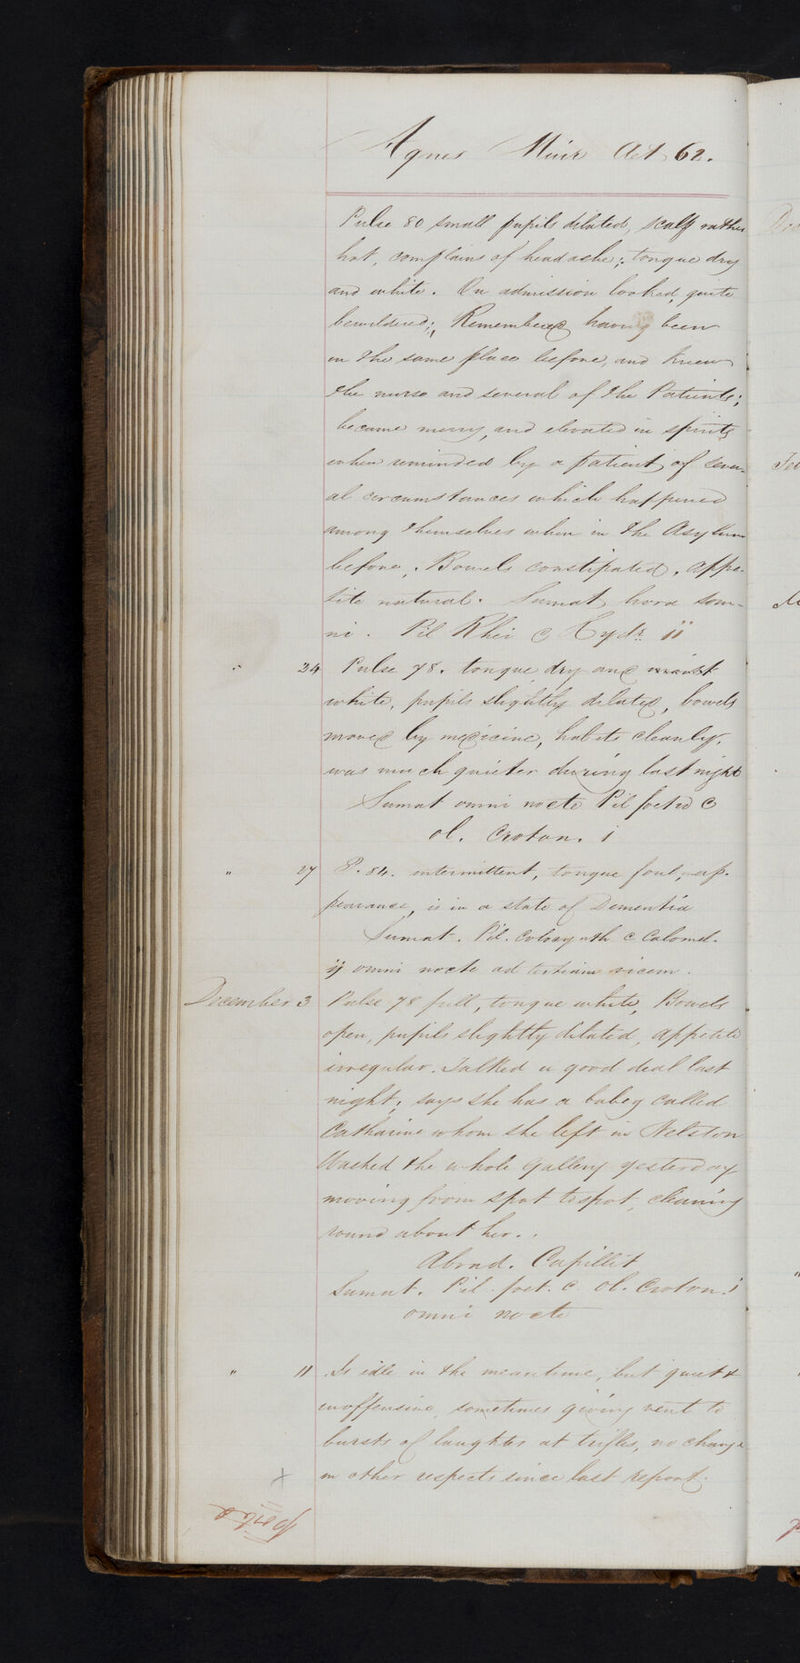 Agnes Muir Aet 62.
Pulse 80 small pupils dilated, scalp rather
hot, complains of headache; tongue dry
and white. On admission looked quite
bewildered; Remembered having been
in the same place before, and knew
the nurse and several of the Patients;
became merry, and elevated in spirits
when reminded by a patient of sever-
al circumstances which happened
among themselves when in the Asylum
before. Bowels constipated, appe-
tite natural. Sumat hora som-
ni. Pil Rhei c Hydr ii
" 24 Pulse 78. tongue dry and
white, pupils slightly dilated, bowels
moved by medicine, habits cleanly,
was much quieter during last night
Sumat omni nocte Pil foetid c
ol. Croton. i
" 27 P. 84. intermittent, tongue foul, ap-
pearance, is in a state of Dementia
Sumat. Pil. Colocynth c Calomel.
ij omni nocte ad tertiam vicem.
December 3 Pulse 78 full, tongue white, Bowels
open, pupils slightly dilated, appetite
irregular. Talked a good deal last
night; says she has a babey called
Catharine whom she left in Neilston
Washed the whole Gallery yesterday
moving from spot to spot, cleaning
round about her.
Abrad. Capillit
Sumat. Pil. foet. c ol. Croton. i
omni nocte
" 11 Is idle in the meantime, but quiet &
inoffensive, sometimes giving vent to
bursts of laughter at trifles, no change
in other respects since last report.